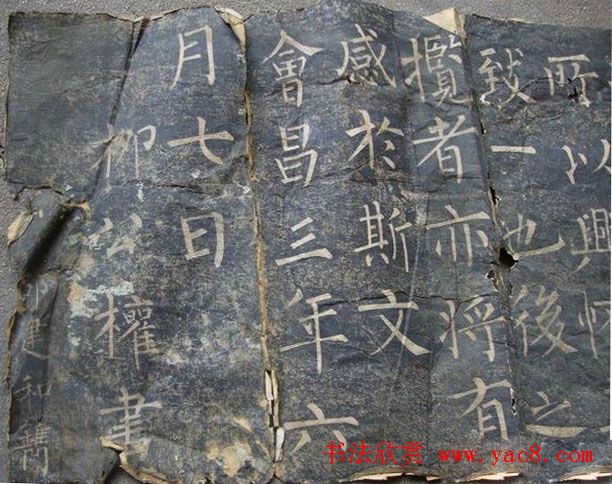 所以興怀
致一也後之
攬者亦将有
感於斯文
會昌三年六
月七日
柳公權書
建和鐫
书法欣赏 www.yac8.com